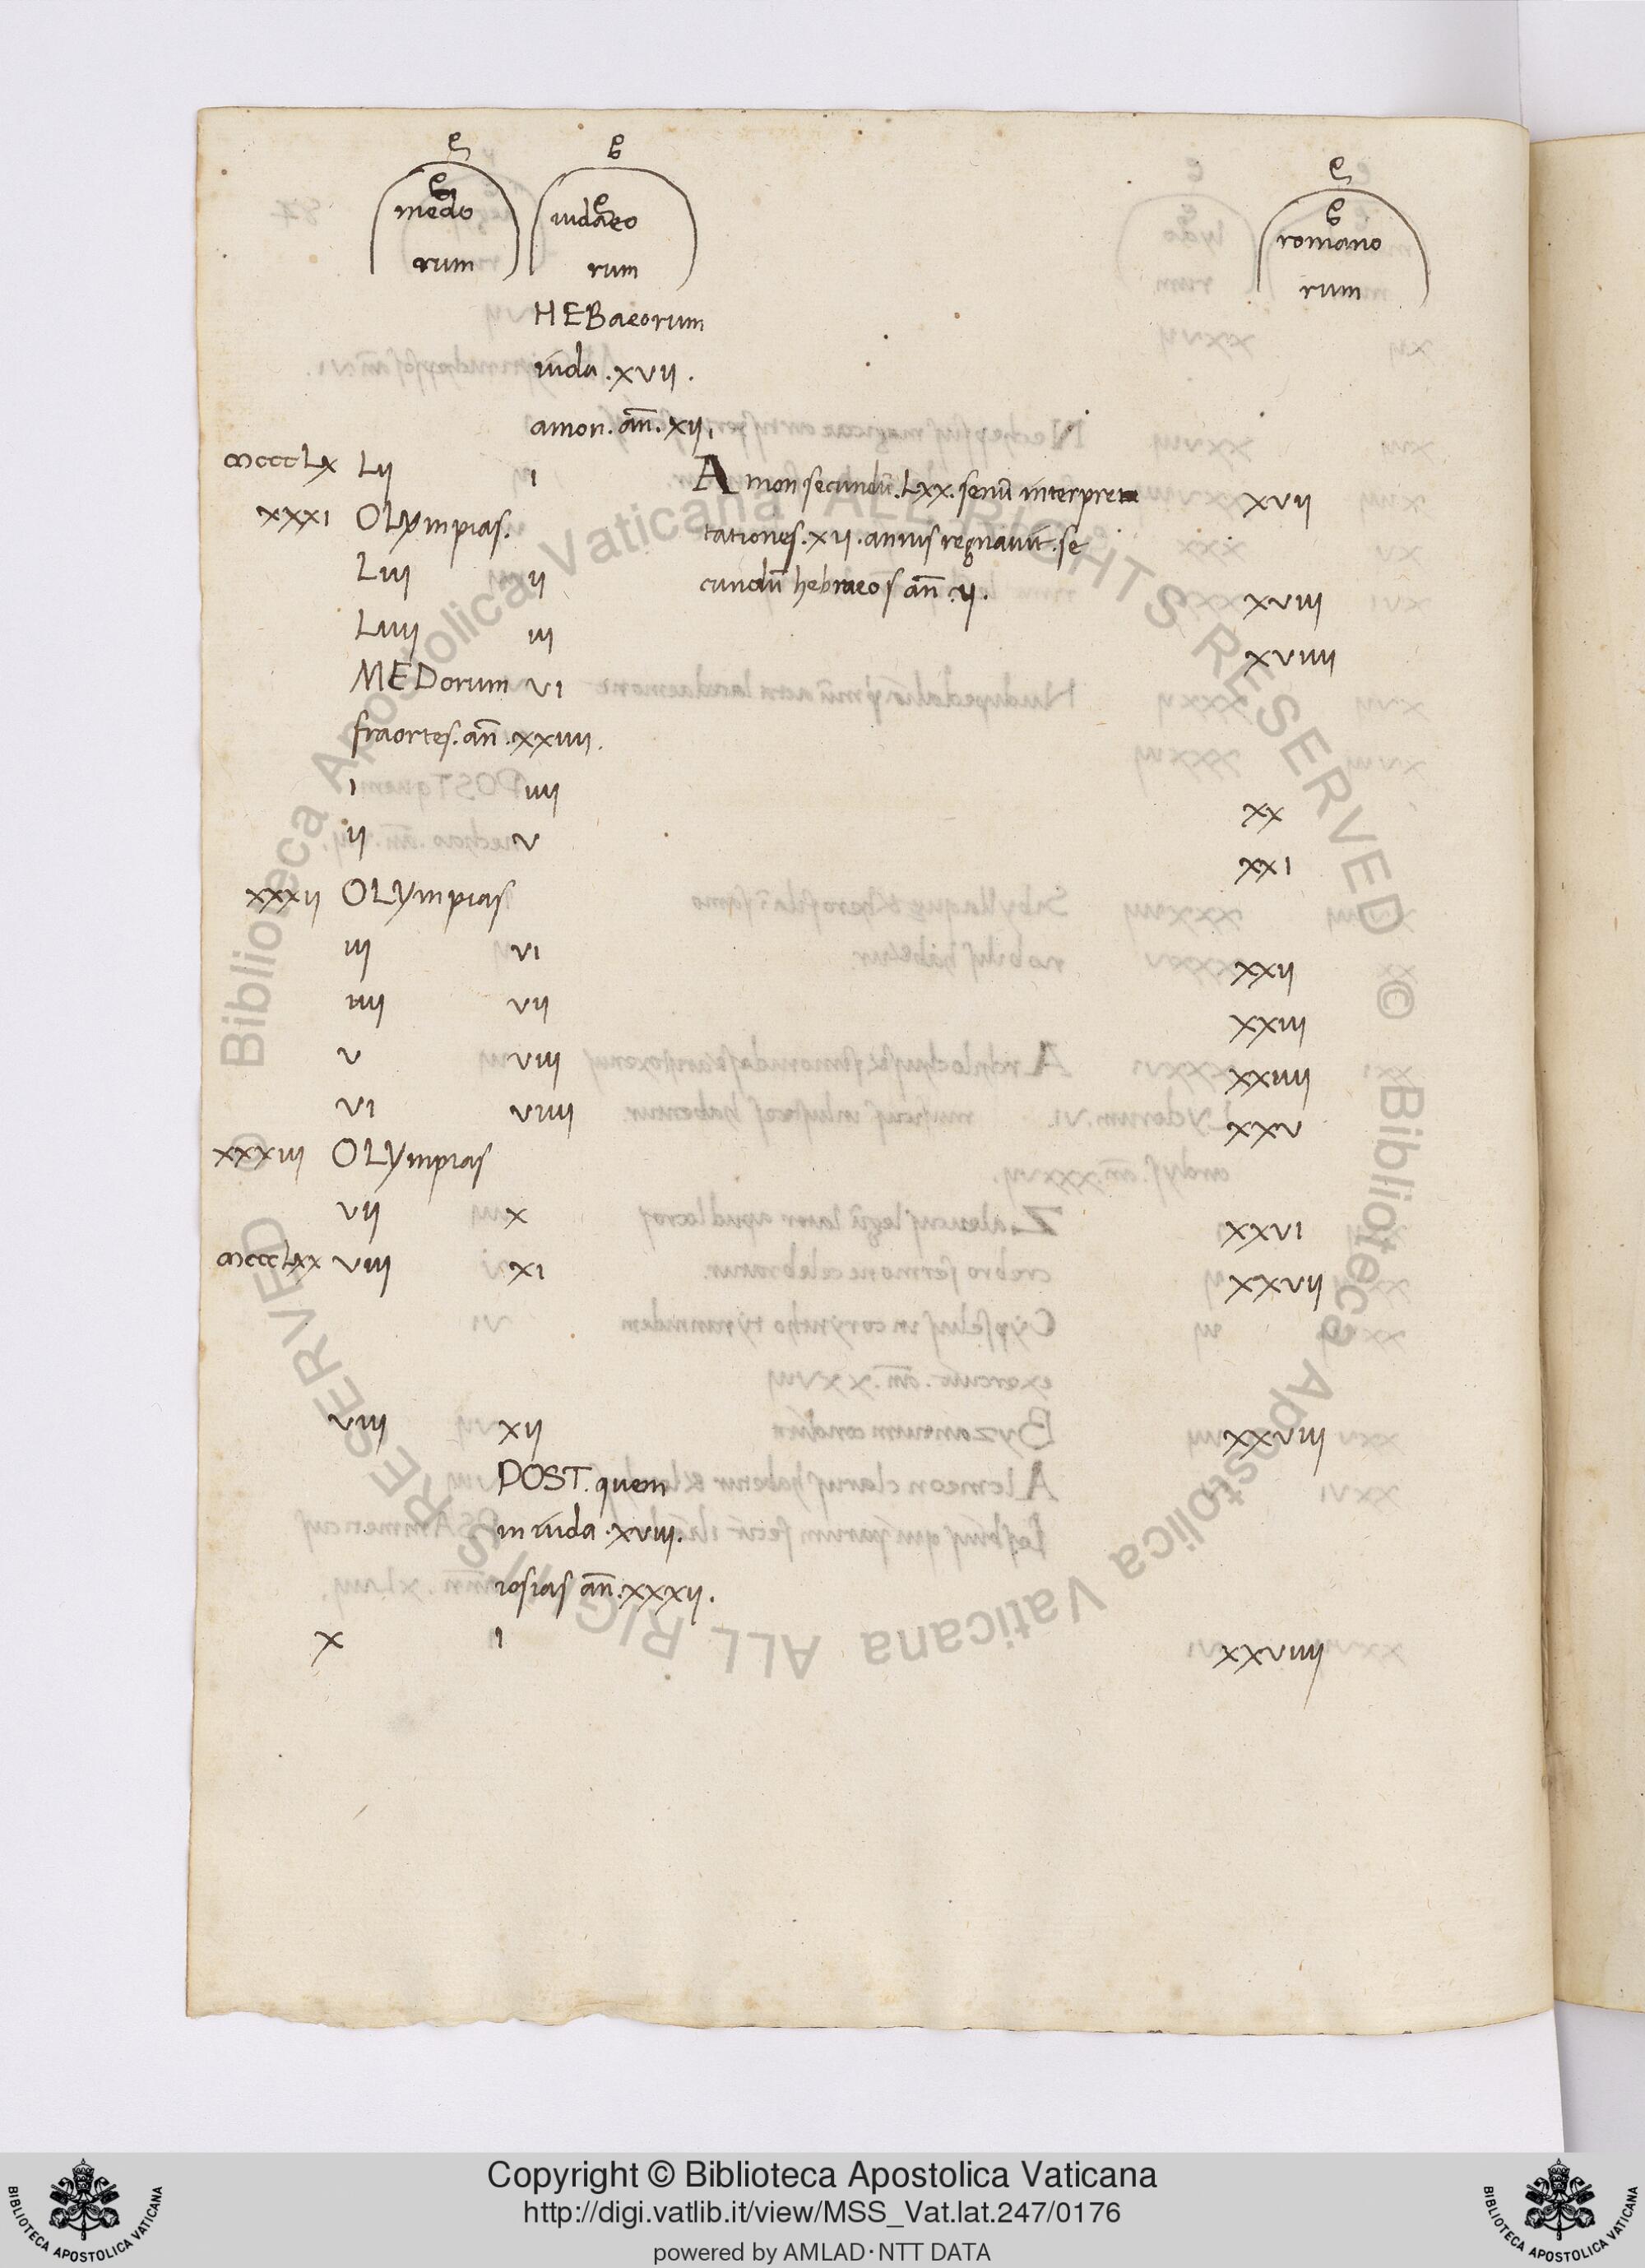 medo
rum
iudaeo
rum
romano
rum
HEBaeorum
iuda .xvii.
amon. an̄. xii.
ꝏccclx Lii i A mon secundū .Lxx. senū interpreta xvii
xxxi OLympias. tationes .xii. annis regnavit. se
Liii ii cundū hebraeos an̄ .ii. xviii
Liiii iii xviiii
MEDorum vi
fraortes. an̄ .xxiiii.
i iiii xx
ii v xxi
xxxii OLympias
iii vi xxii
iiii vii xxiii
v viii xxiiii
vi viiii xxv
xxxiii OLympias
vii x xxvi
ꝏccclxx viii xi xxvii
viiii xii xxviii
POST. quem
in iuda .xviii.
iosias an̄ .xxxii.
x i xxviiii
© Biblioteca Apostolica Vaticana ALL RIGHTS RESERVED © Biblioteca Apostolica Vaticana ALL RIGHTS RESERVED
Copyright © Biblioteca Apostolica Vaticana
http://digi.vatlib.it/view/MSS_Vat.lat.247/0176
powered by AMLAD·NTT DATA
BIBLIOTECA APOSTOLICA VATICANA
BIBLIOTECA APOSTOLICA VATICANA